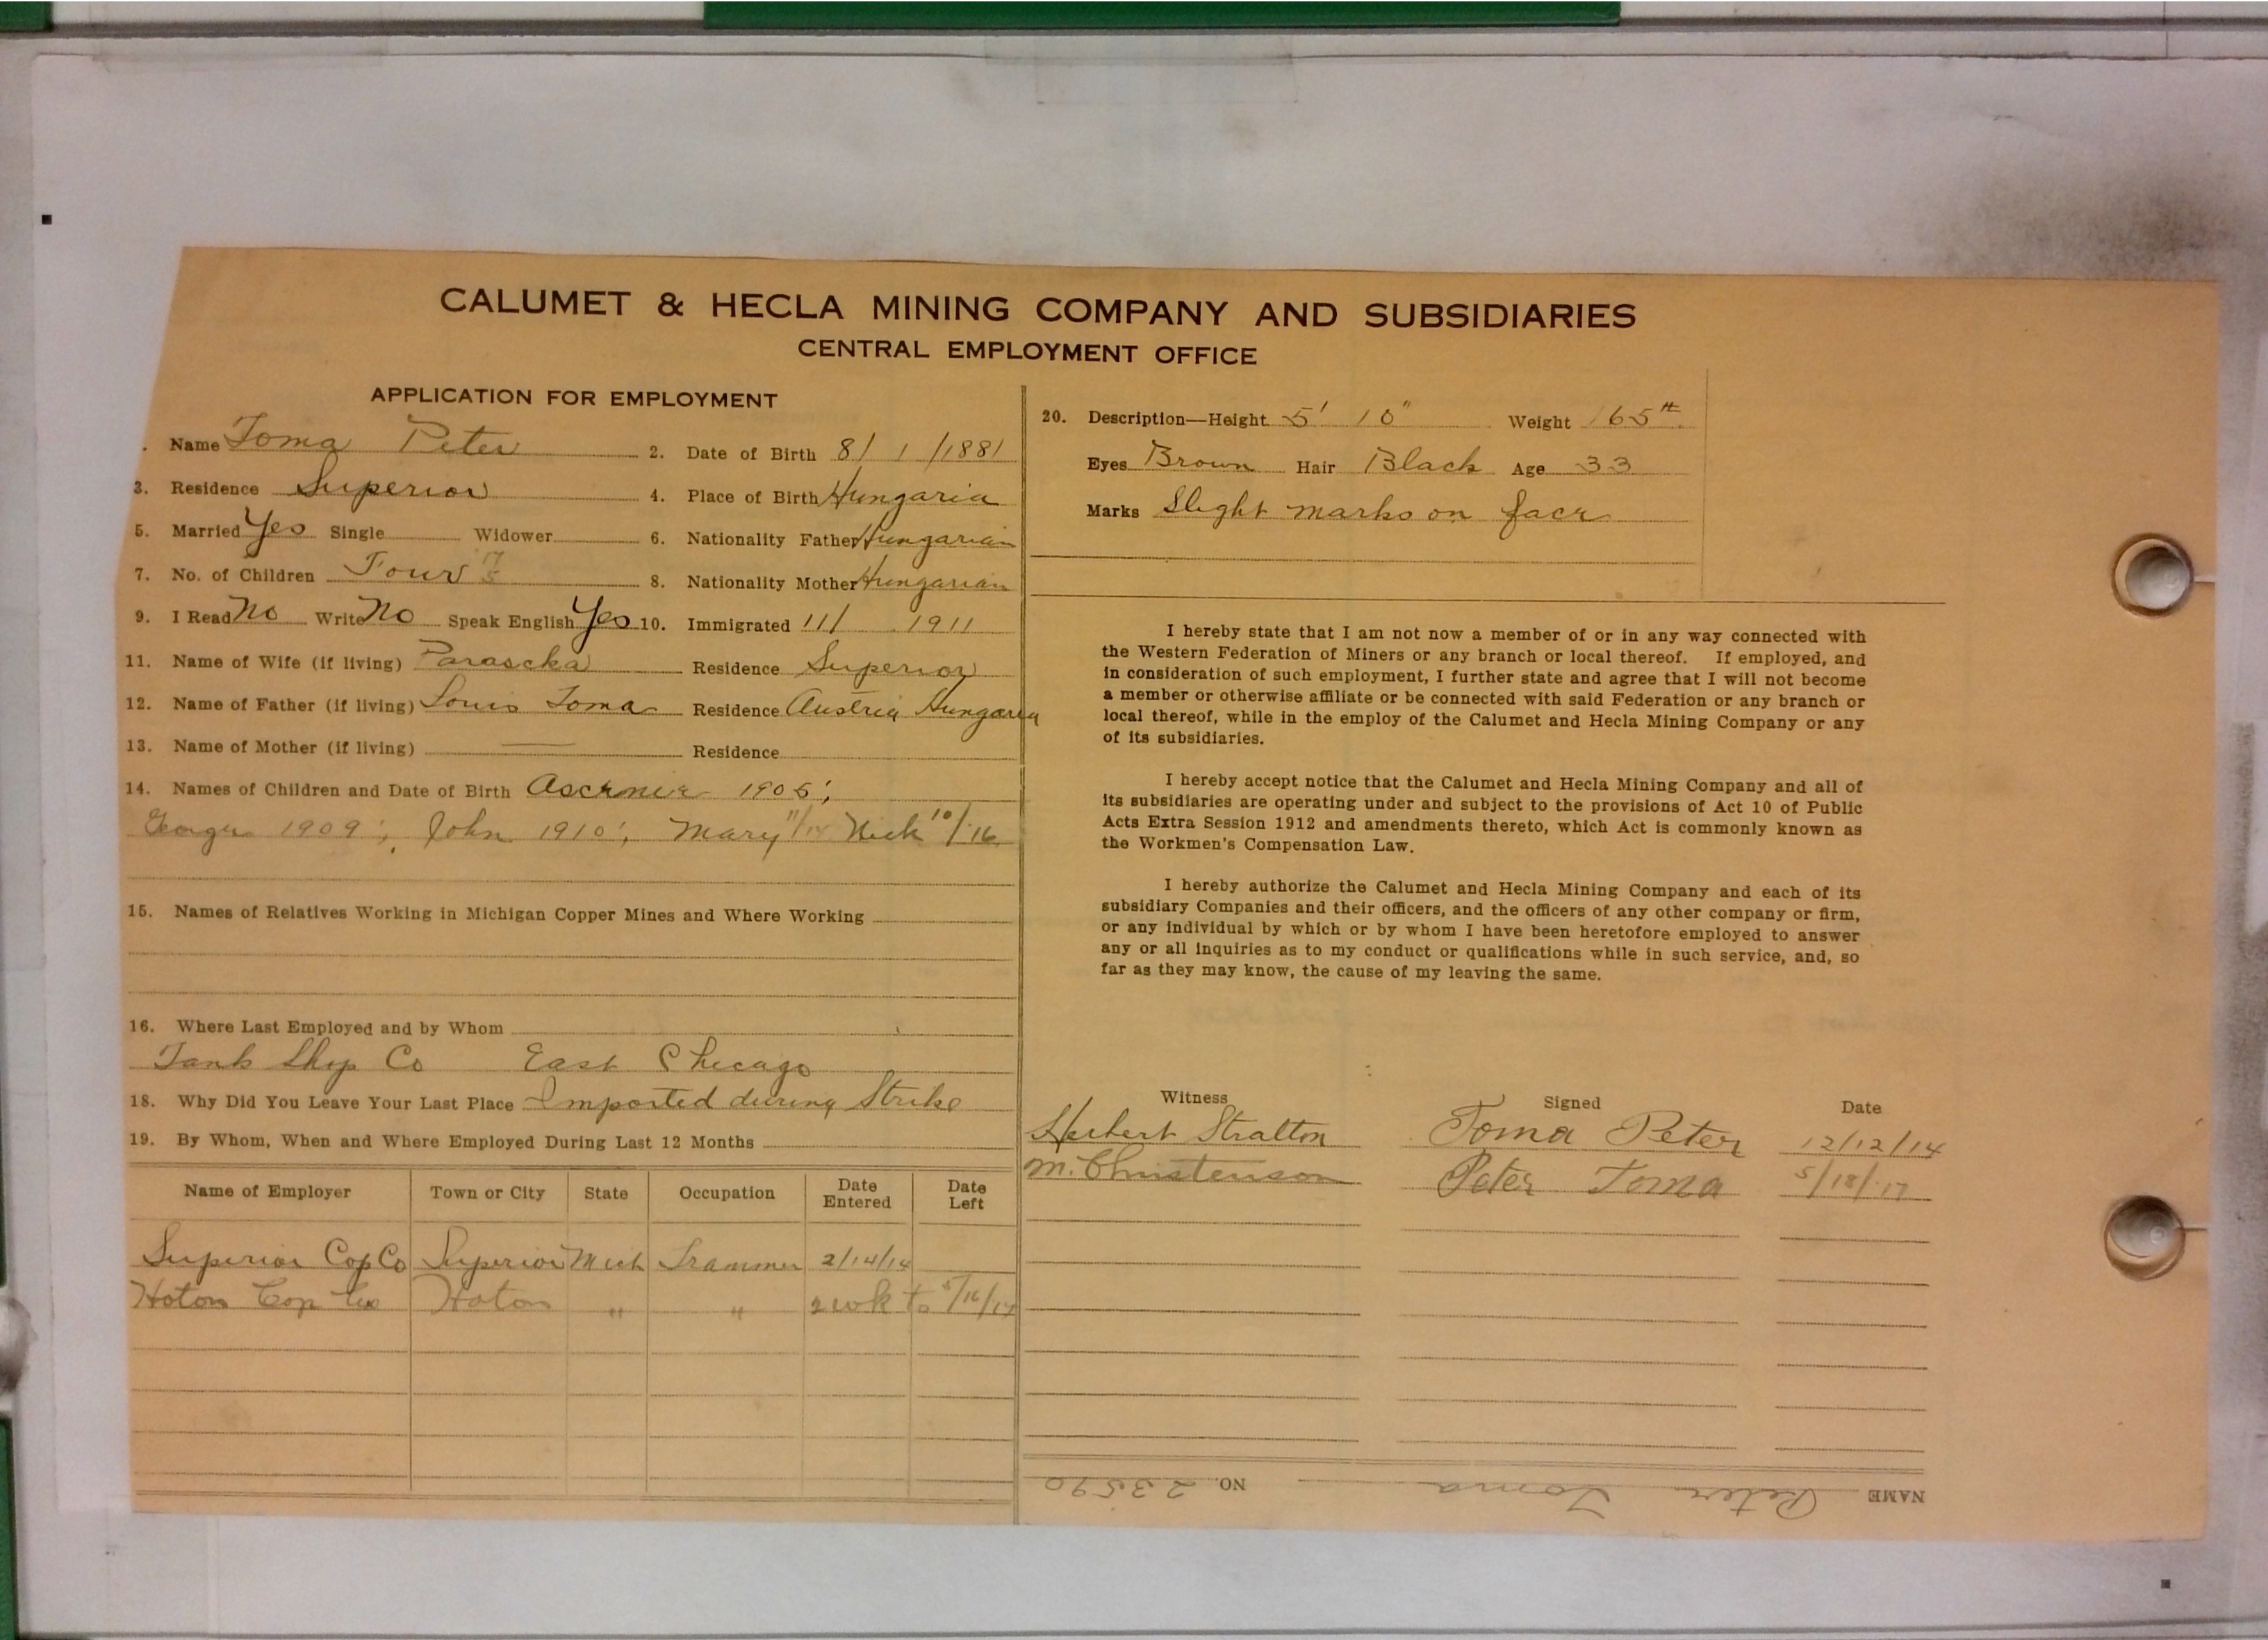 CALUMET & HECLA MINING COMPANY AND SUBSIDIARIES
CENTRAL EMPLOYMENT OFFICE
APPLICATION FOR EMPLOYMENT
. Name Toma Peter 2. Date of Birth 8/ 1 /1881
3. Residence Superior 4. Place of Birth Hungaria
5. Married Yes Single Widower 6. Nationality Father Hungarian
7. No. of Children Four 8. Nationality Mother Hungarian
9. I Read No Write No Speak English Yes 10. Immigrated 11/ 1911
11. Name of Wife (if living) Parascka Residence Superior
12. Name of Father (if living) Louis Toma Residence Austria Hungaria
13. Name of Mother (if living) — Residence
14. Names of Children and Date of Birth 1905;
George 1909; John 1910; Mary 11/14 Nick 10/16
15. Names of Relatives Working in Michigan Copper Mines and Where Working
16. Where Last Employed and by Whom
Tank Shop Co East Chicago
18. Why Did You Leave Your Last Place Imported during Strike
19. By Whom, When and Where Employed During Last 12 Months
Name of Employer Town or City State Occupation Date Entered Date Left
Superior Cop Co Superior Mich Trammer 2/14/14
Hoton Cop Co Hoton " " 2 wk to 5/16/17
20. Description—Height 5' 10" Weight 165#
Eyes Brown Hair Black Age 33
Marks Slight marks on face
I hereby state that I am not now a member of or in any way connected with
the Western Federation of Miners or any branch or local thereof. If employed, and
in consideration of such employment, I further state and agree that I will not become
a member or otherwise affiliate or be connected with said Federation or any branch or
local thereof, while in the employ of the Calumet and Hecla Mining Company or any
of its subsidiaries.
I hereby accept notice that the Calumet and Hecla Mining Company and all of
its subsidiaries are operating under and subject to the provisions of Act 10 of Public
Acts Extra Session 1912 and amendments thereto, which Act is commonly known as
the Workmen's Compensation Law.
I hereby authorize the Calumet and Hecla Mining Company and each of its
subsidiary Companies and their officers, and the officers of any other company or firm,
or any individual by which or by whom I have been heretofore employed to answer
any or all inquiries as to my conduct or qualifications while in such service, and, so
far as they may know, the cause of my leaving the same.
Witness Signed Date
Herbert Stratton Toma Peter 12/12/14
M. Christenson Peter Toma 5/18/17
NAME Peter Toma NO. 23590